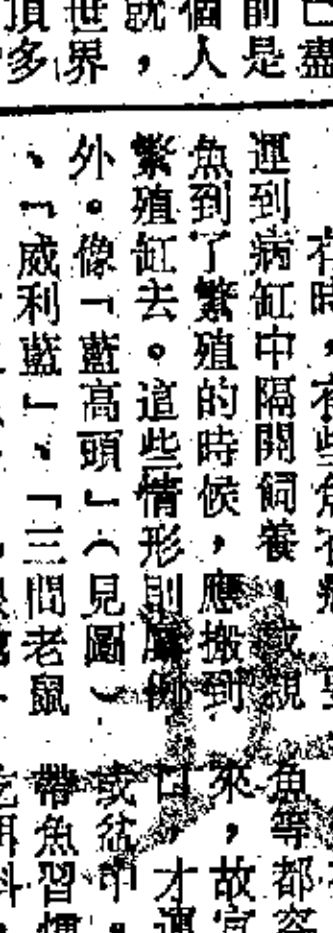 盡
前是
個人
就，
世界
頂多
運到病缸中隔開飼養，或親
魚到了繁殖的時候，應搬到
繁殖缸去。這些情形則屬例
外。像「藍高頭」（見圖）
、「威利藍」、「三間老鼠
魚等都
來，故
口，才運
或盆中。
帶魚習